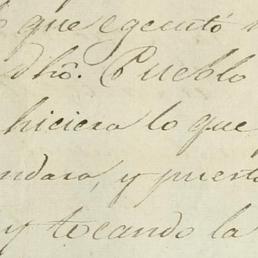 que egecutó
dhô. Pueblo
hiciera lo que
ndara, y puerto
y tocando la